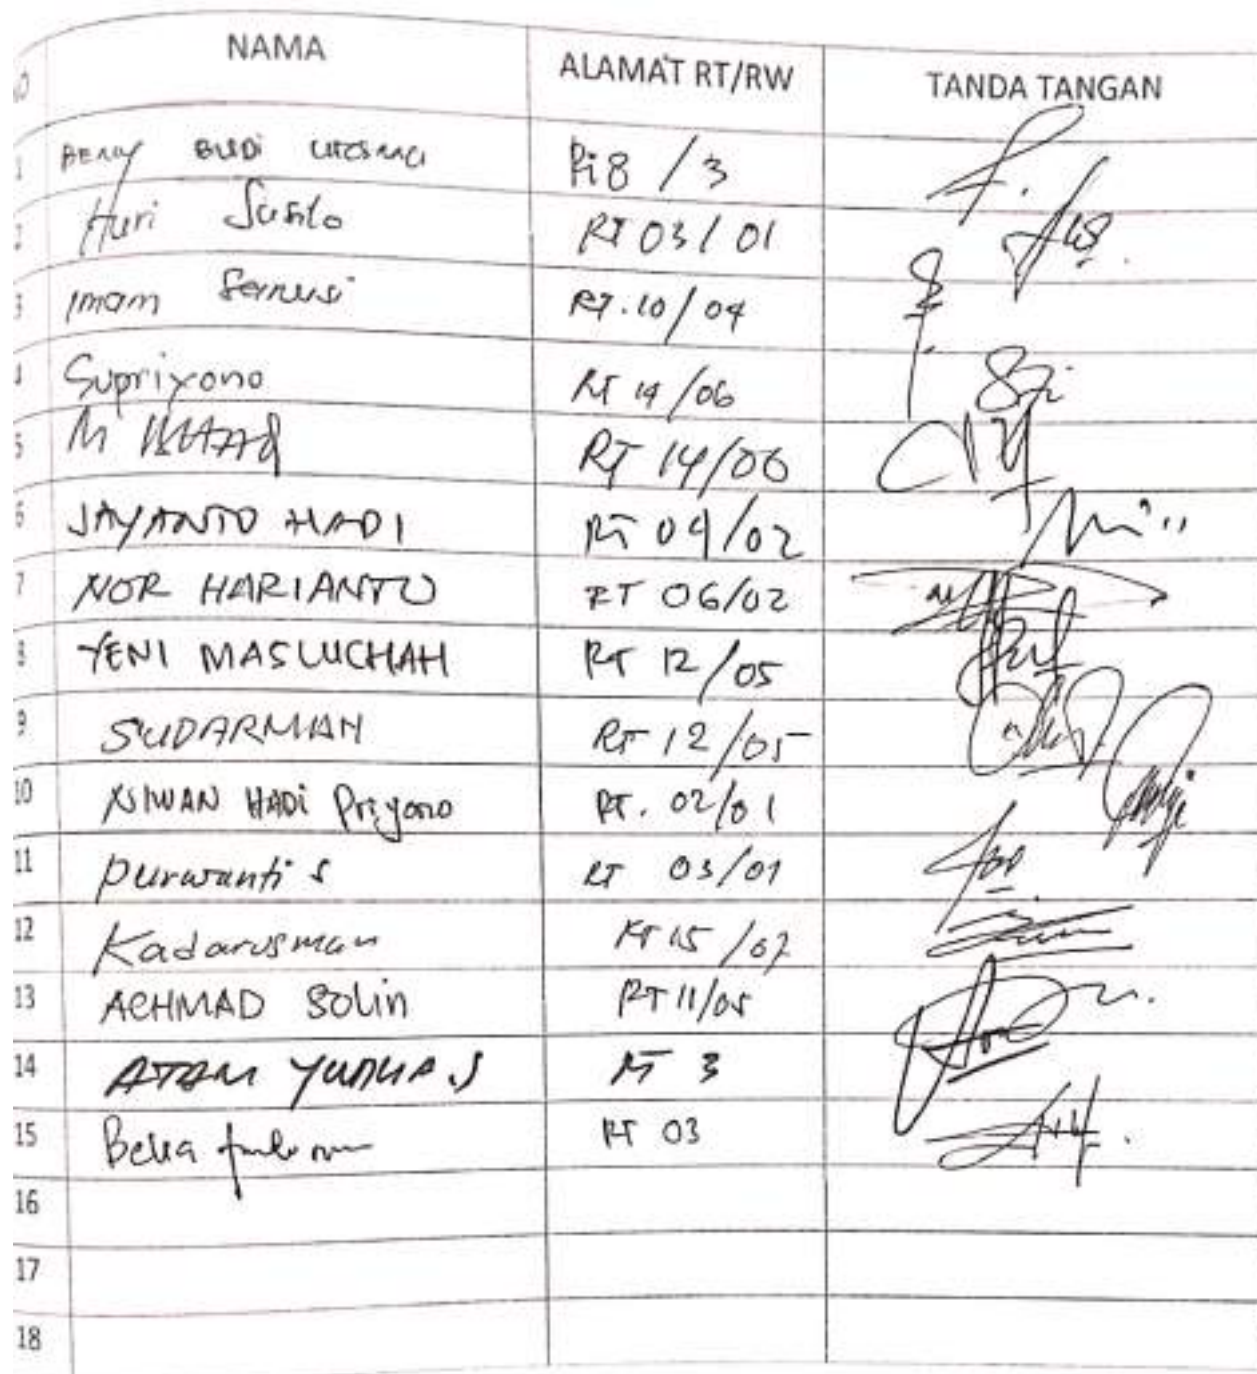 NO NAMA ALAMAT RT/RW TANDA TANGAN
1 BENY BUDI 8 / 3
2 Huri Susilo RT 03/01
3 Imam RT.10/04
4 Supriyono RT 14/06
5 M RT 14/06
6 JAYANTO HADI RT 04/02
7 NOR HARIANTO RT 06/02
8 YENI MASLUCHAH RT 12/05
9 SUDARMAN RT 12/05
10 HADI Priyono RT. 02/01
11 Purwanti S RT 03/01
12 Kadarusman RT 15/07
13 ACHMAD Solin RT 11/05
14 YUDHA.S RT 3
15 Bella RT 03
16
17
18